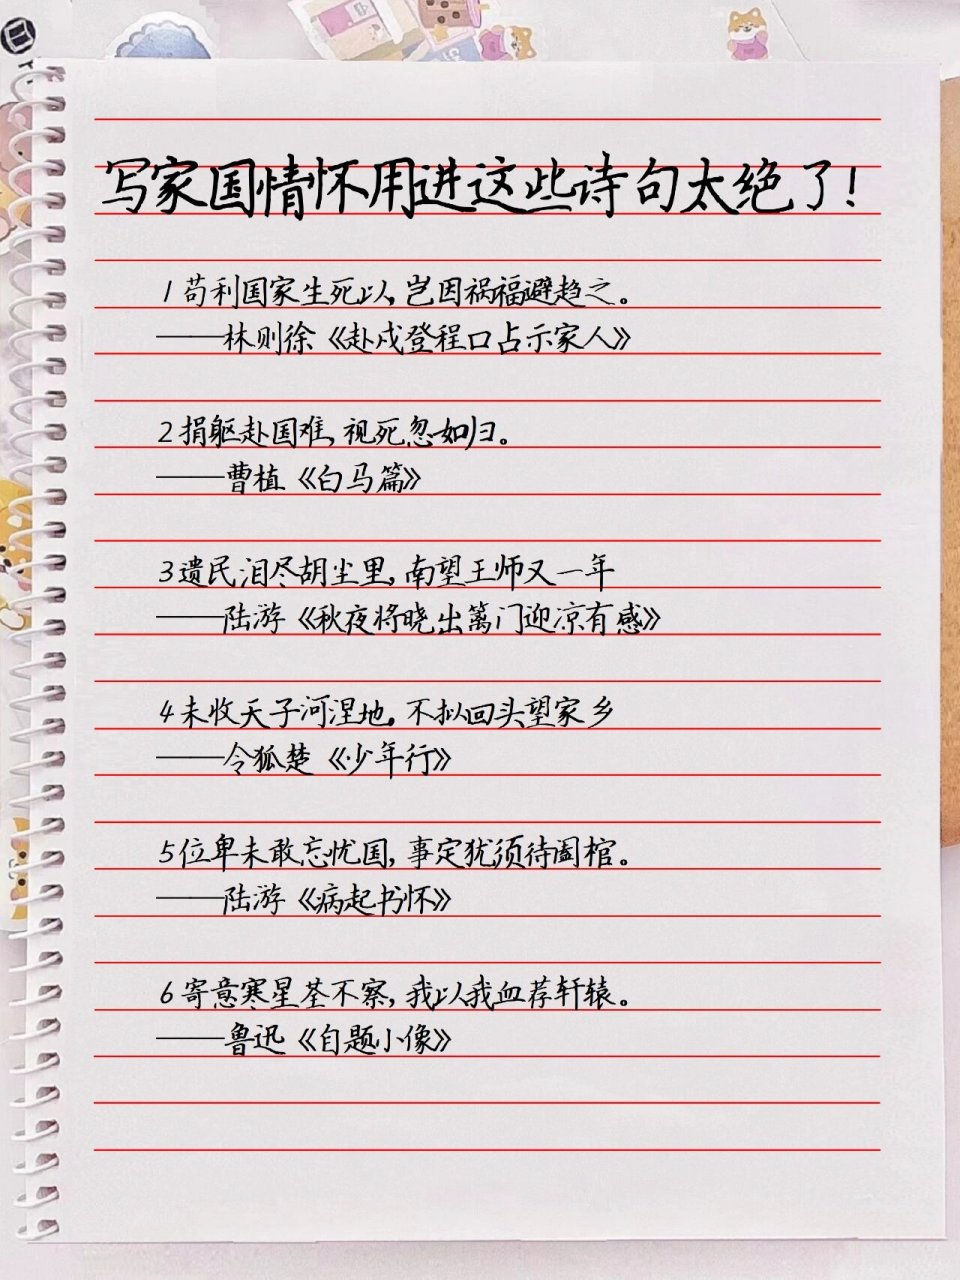 写家国情怀用进这些诗句太绝了!
1苟利国家生死以,岂因祸福避趋之。
——林则徐《赴戍登程口占示家人》
2捐躯赴国难,视死忽如归。
——曹植《白马篇》
3遗民泪尽胡尘里,南望王师又一年
——陆游《秋夜将晓出篱门迎凉有感》
4未收天子河湟地。不拟回头望家乡
——令狐楚《少年行》
5位卑未敢忘忧国,事定犹须待阖棺。
——陆游《病起书怀》
6寄意寒星荃不察,我以我血荐轩辕。
——鲁迅《自题小像》